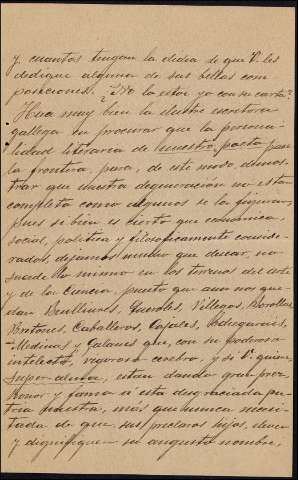 y cuantos tengan la dicha de que V. les
dedique alguna de sus bellas com
posiciones. ¿No la estoy yo con su carta?
Hace muy bien la ilustre escritora
gallega en procurar que la person
lidad literaria de nuestro poeta pase
la frontera, para, de este modo, demos
trar que nuestra degeneracion no es tan
completa como algunos se la figuran,
pues si bien es cierto que económica,
social, política y filosóficamente conside
rados, dejamos mucho que desear, no
sucede lo mismo en los terrenos del arte
y de la ciencia, puesto que aun nos que
dan Benlliures, Queroles, Villegas, Sorollas,
Bretones, Caballeros, Cajales, Echegarais,
Medinas y Galanes que, con su poderoso
intelecto, vigoroso cerebro, y si V. quiere,
super-alma, estan dando gran prez,
honor y fama a esta desgraciada pa
tria nuestra, más que nunca necesi
tada de que sus preclaros hijos, eleven
y dignifiquen su augusto nombre,